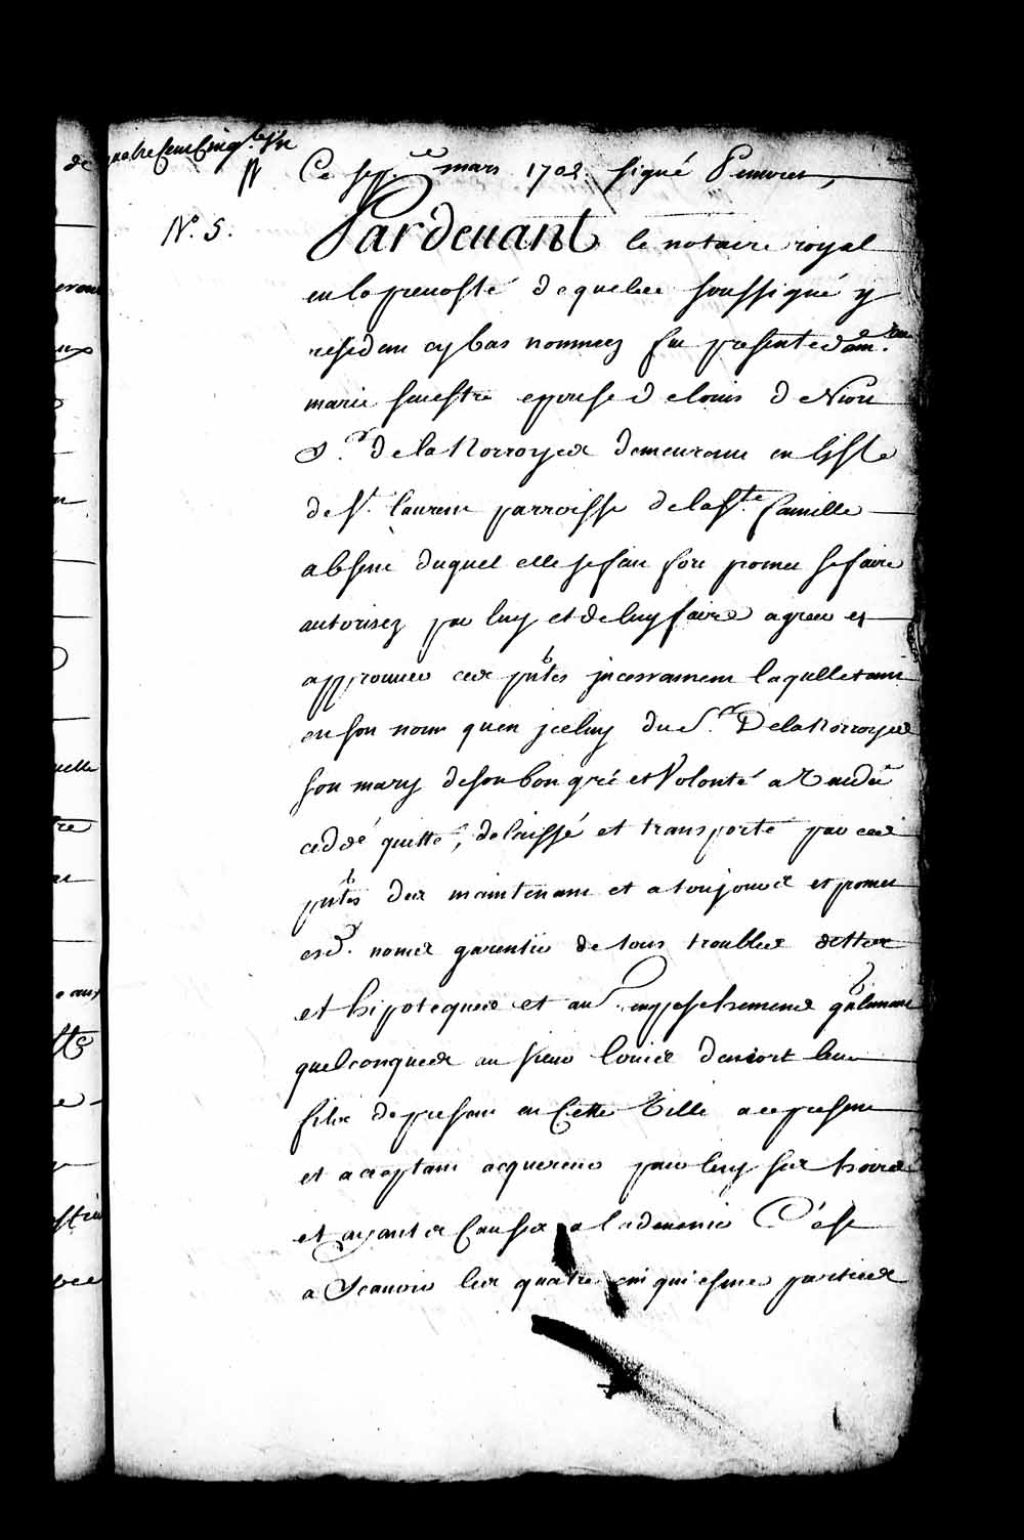 Ce sept.e mars 1702. signé
N.o 5.
Pardeuant le notaire royal
en la preuosté de quebec soussigné y
residant cy bas nommez fut presente dam.lle
marie seuestre epouse de louis de Niort
S.r de la Norroyee demeurant en lisle
de S.t laurent parroisse de la S.te famille
absent duquel elle se fait fort promet se faire
autorisez par luy et de luy faire agreer et
approuuer ces pntes incessamment laquelle tant
en son nom quen iceluy du S.r De la Norroyee
son mary de son bon gré et Volonté a Vendu
ceddé quitté, delaissé et transporté par ces
pntes des maintenant et a toujours et promet
esd. noms garentir de tous troubles dettes
et hipoteques et au. empeschements gnalement
quelconques au sieur louis deniort leur
fils de present en Cette Ville a ce present
et acceptant acquereur pour luy ses hoirs
et ayants Causes a l'aduenir C'est
a Scauoir les quatre cinquiesmes parties